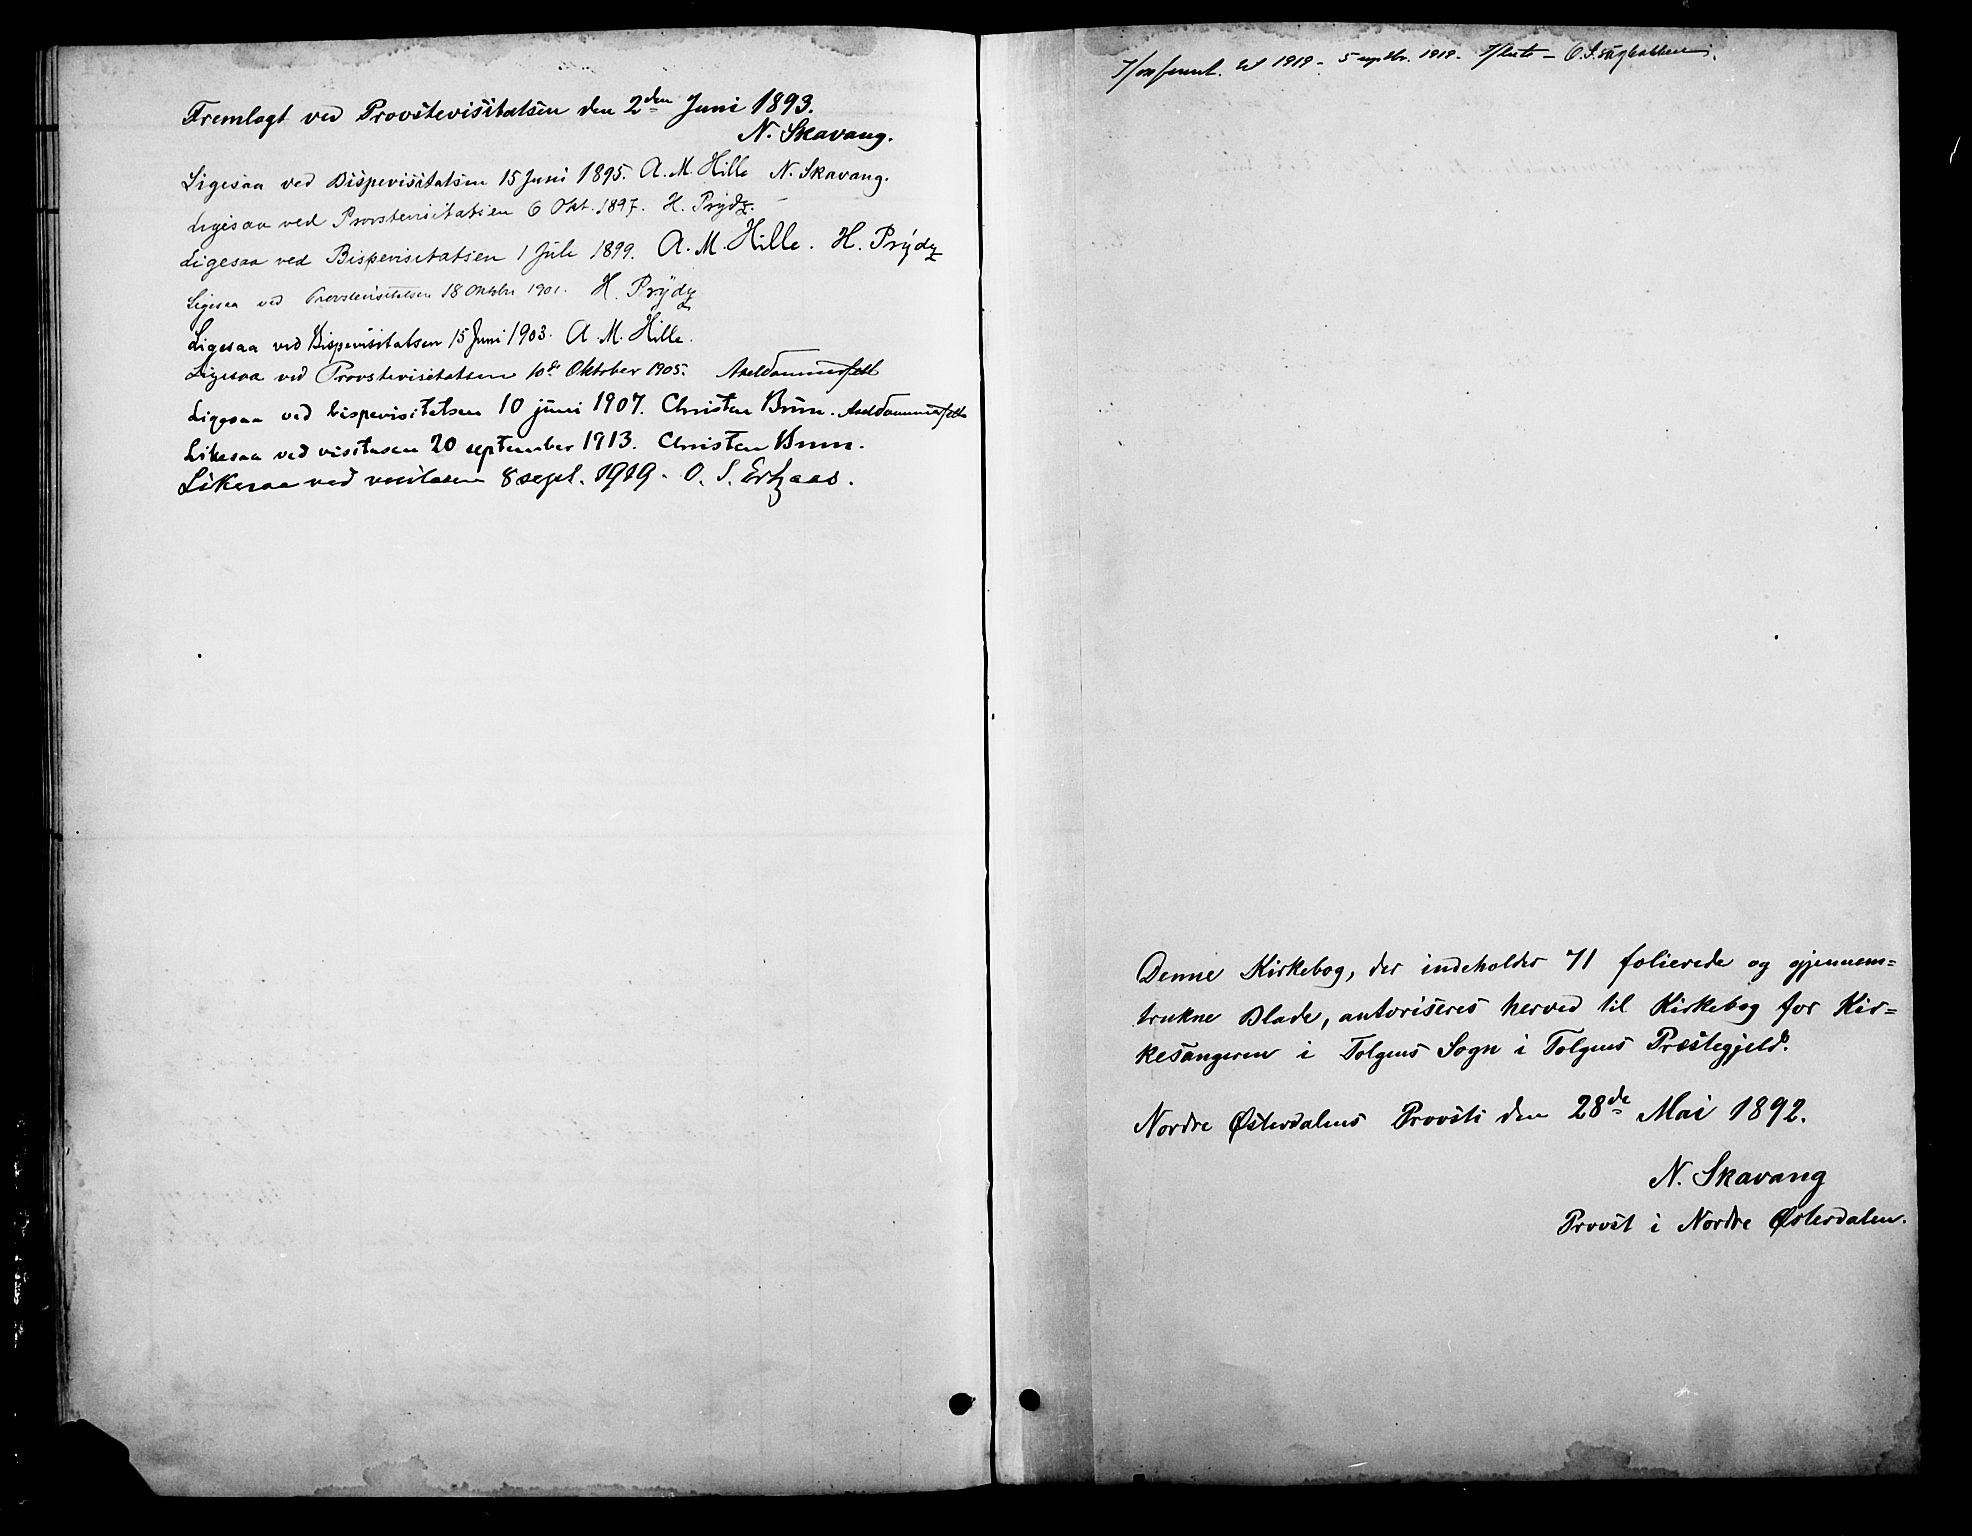 Fremlagt ved Provstevisitatsen den 2den Juni 1893.
N. Skavang.
Ligesaa ved Bispevisitatsen 15 Juni 1895. A. M. Hille N. Skavang.
Ligesaa ved Provstevisitatsen 6 Okt. 1897. H. Prydz.
Ligesaa ved Bispevisitatsen 1 Juli 1899. A. M. Hille. H. Prydz
Ligesaa ved Provstevisitatsen 18 Oktober 1901. H. Prydz
Ligesaa ved Bispevisitatsen 15 Juni 1903. A. M. Hille.
Ligesaa ved Provstevisitatsen 10de Oktober 1905.
Ligesaa ved bispevisitatsen 10 juni 1907. Christen Brun.
Likesaa ved visitasen 20 september 1913. Christen Brun.
Likesaa ved visitasen 8 sept. 1919. O. S.
1919 - 5 septbr. 1919.
Denne Kirkebog, der indeholder 71 folierede og gjennem=
trukne Blade, autoriseres herved til Kirkebog for Kir=
kesangeren i Tolgens Sogn i Tolgens Præstegjeld.
Nordre Østerdalens Provsti den 28de Mai 1892.
N. Skavang
Provst i Nordre Østerdalen.